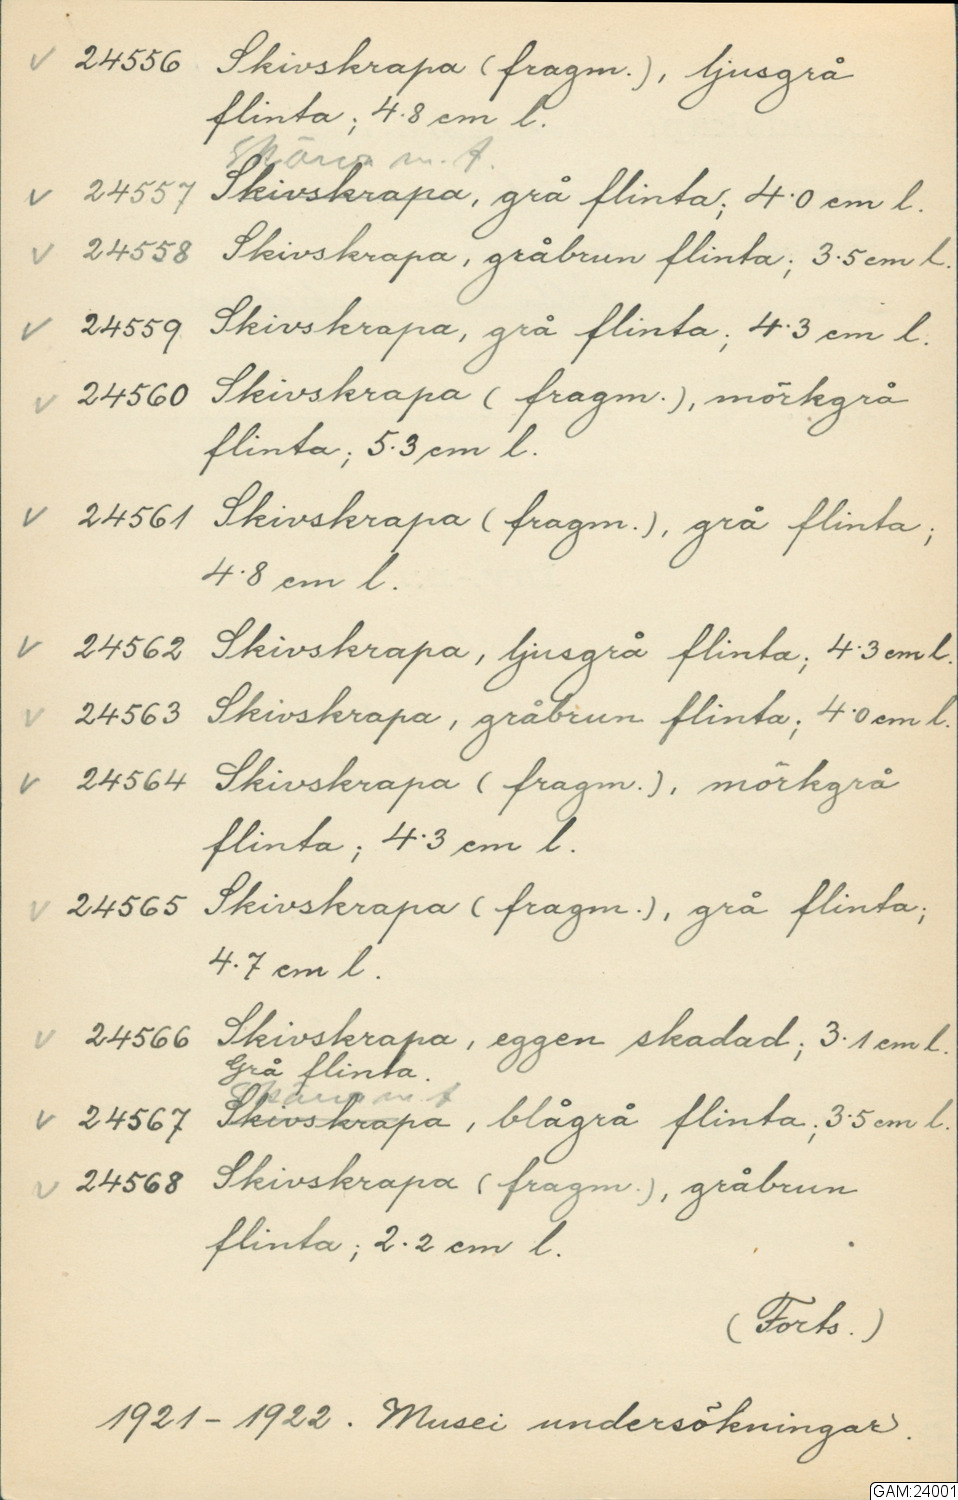 v 24556 Skivskrapa (fragm.), ljusgrå
flinta; 4.8 cm l.
Skärva m. t.
v 24557 Skivskrapa, grå flinta; 4.0 cm l.
v 24558 Skivskrapa, gråbrun flinta; 3.5 cm l.
v 24559 Skivskrapa, grå flinta; 4.3 cm l.
v 24560 Skivskrapa (fragm.), mörkgrå
flinta; 5.3 cm l.
v 24561 Skivskrapa (fragm.), grå flinta;
4.8 cm l.
v 24562 Skivskrapa, ljusgrå flinta; 4.3 cm l.
v 24563 Skivskrapa, gråbrun flinta; 4.0 cm l.
v 24564 Skivskrapa (fragm.), mörkgrå
flinta; 4.3 cm l.
v 24565 Skivskrapa (fragm.), grå flinta;
4.7 cm l.
v 24566 Skivskrapa, eggen skadad; 3.1 cm l.
Grå flinta.
m t
v 24567 Skivskrapa, blågrå flinta; 3.5 cm l.
v 24568 Skivskrapa (fragm.), gråbrun
flinta; 2.2 cm l.
(Forts.)
1921-1922. Musei undersökningar.
GAM:24001